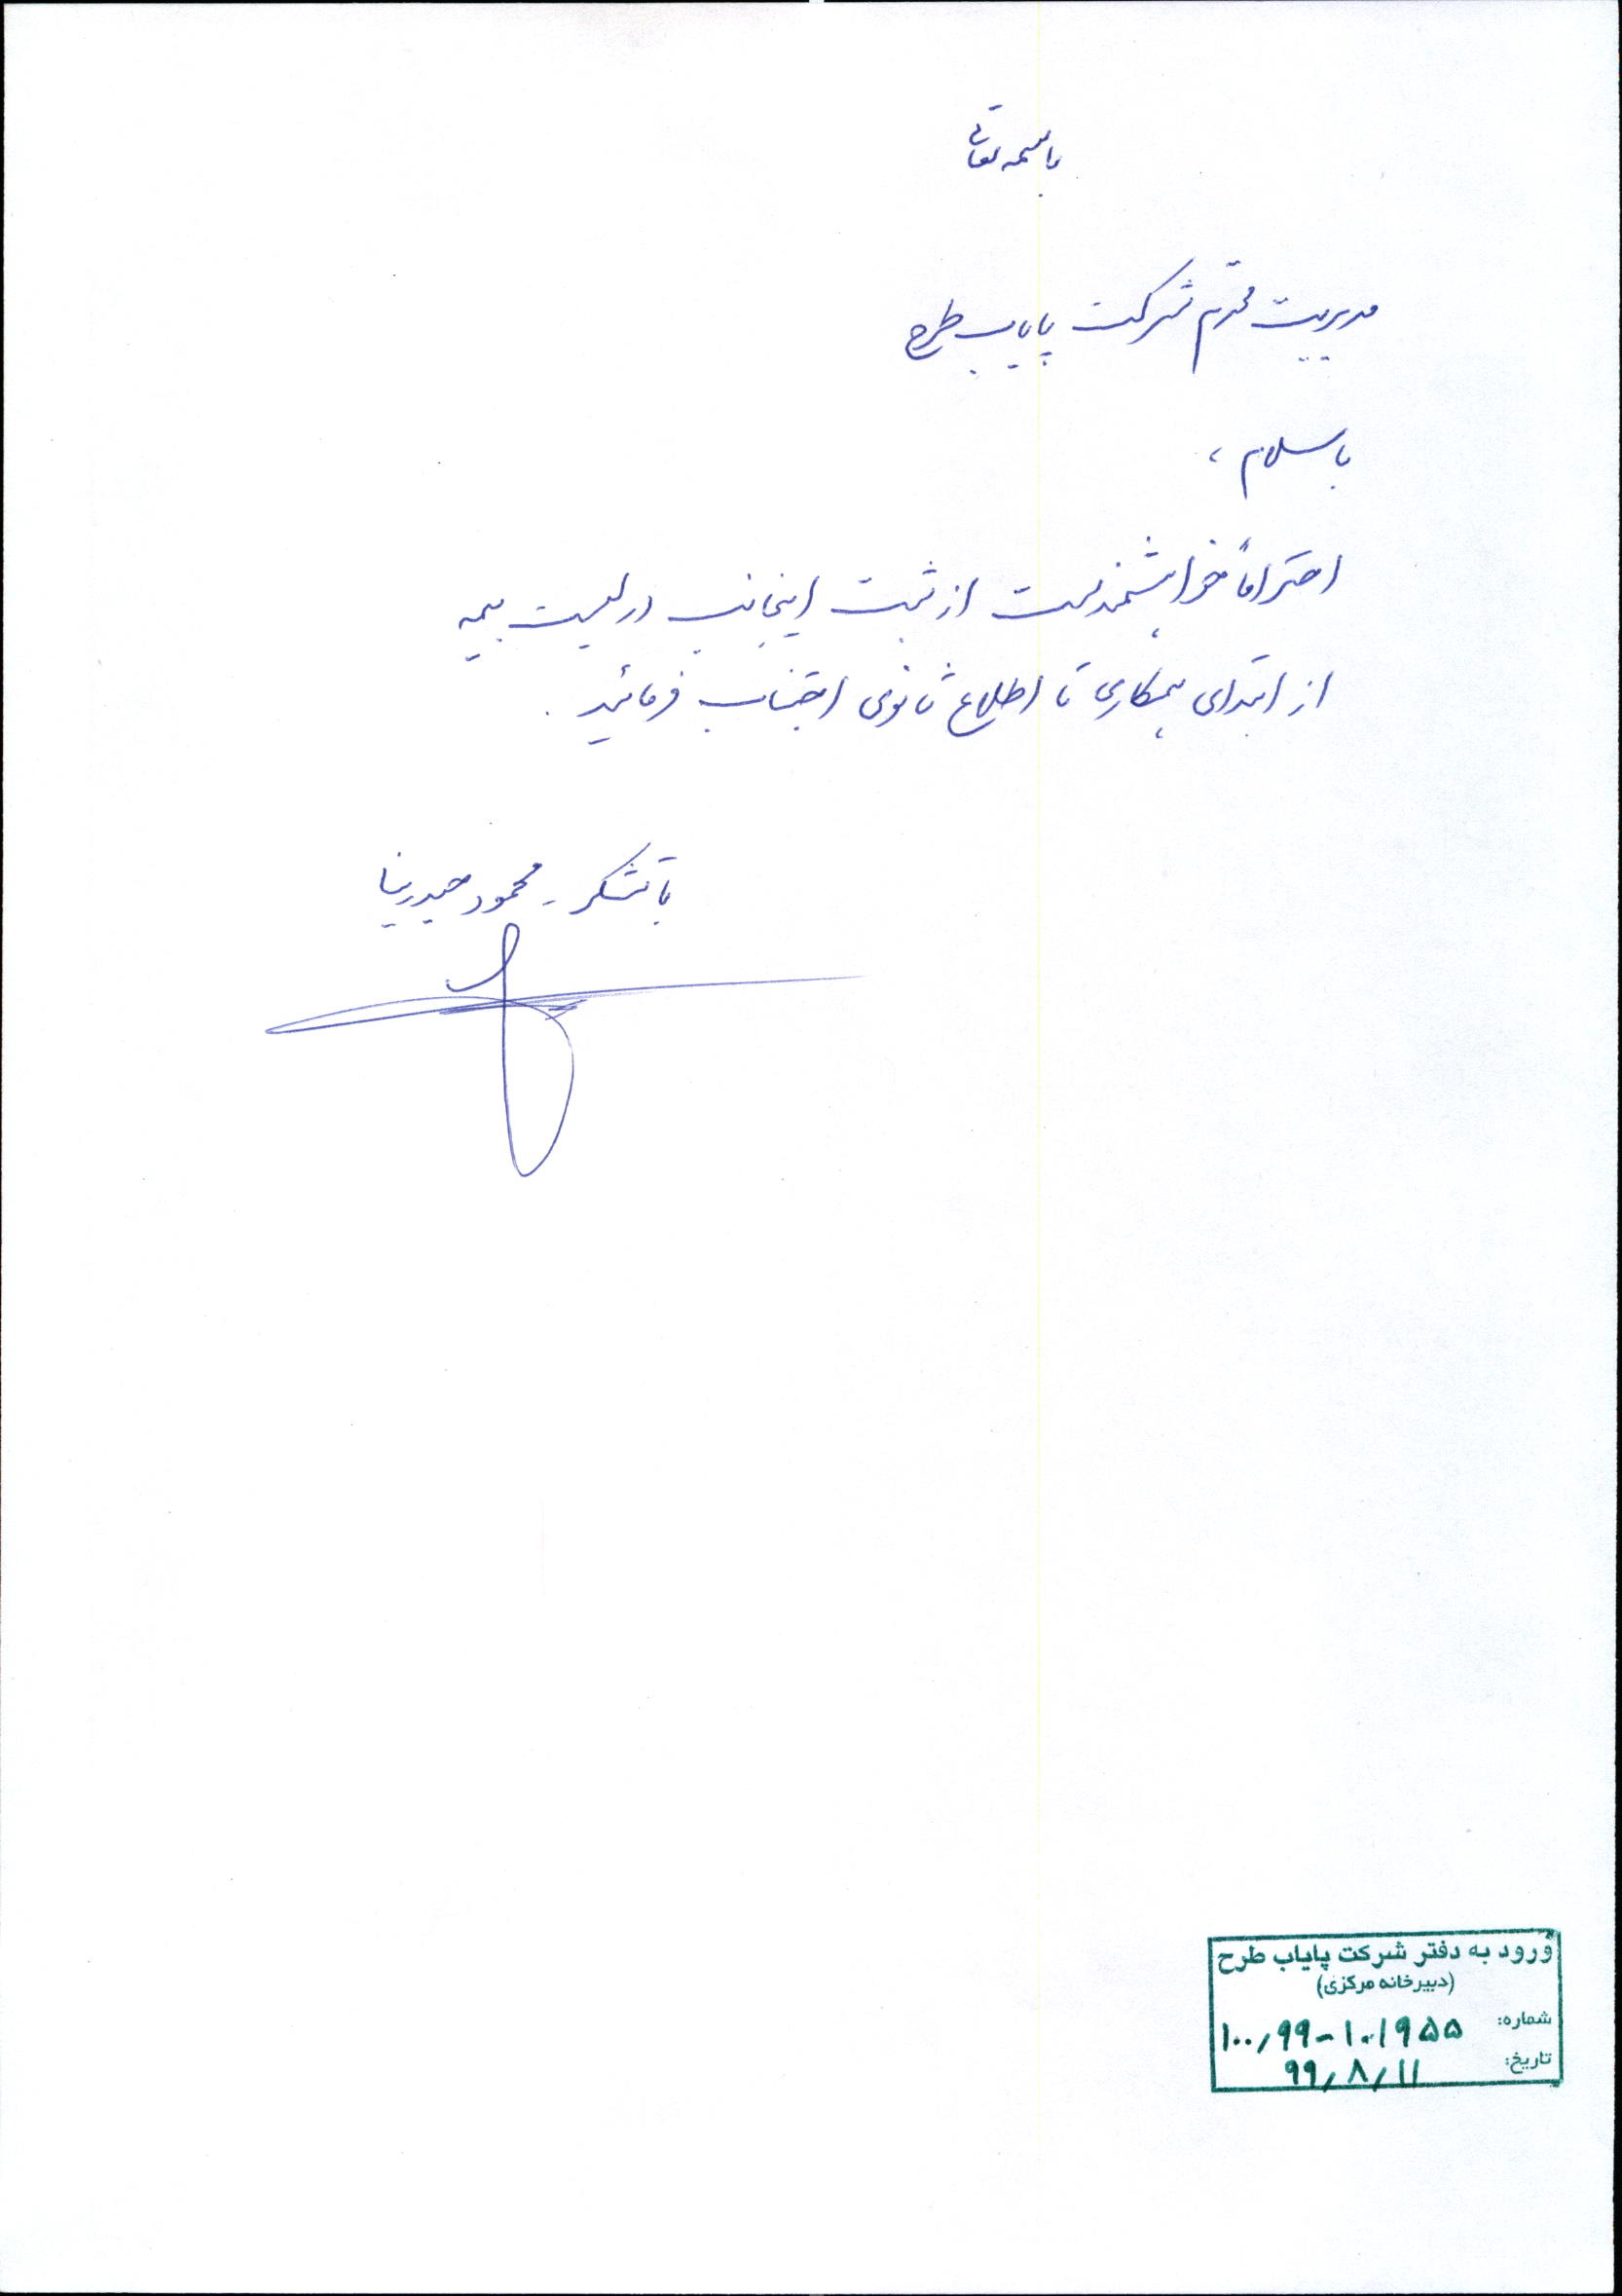 باسمه تعالی
مدیریت محترم شرکت پایاب طرح
با سلام ،
احتراماً خواهشمند است از ثبت اینجانب در لیست بیمه
از ابتدای همکاری تا اطلاع ثانوی اجتناب فرمائید .
با تشکر - محمود حیدرنیا
ورود به دفتر شرکت پایاب طرح
(دبیرخانه مرکزی)
شماره: ۱۰۰٫۹۹-۱۰۱۹۵۵
تاریخ: ۹۹٫۸٫۱۱